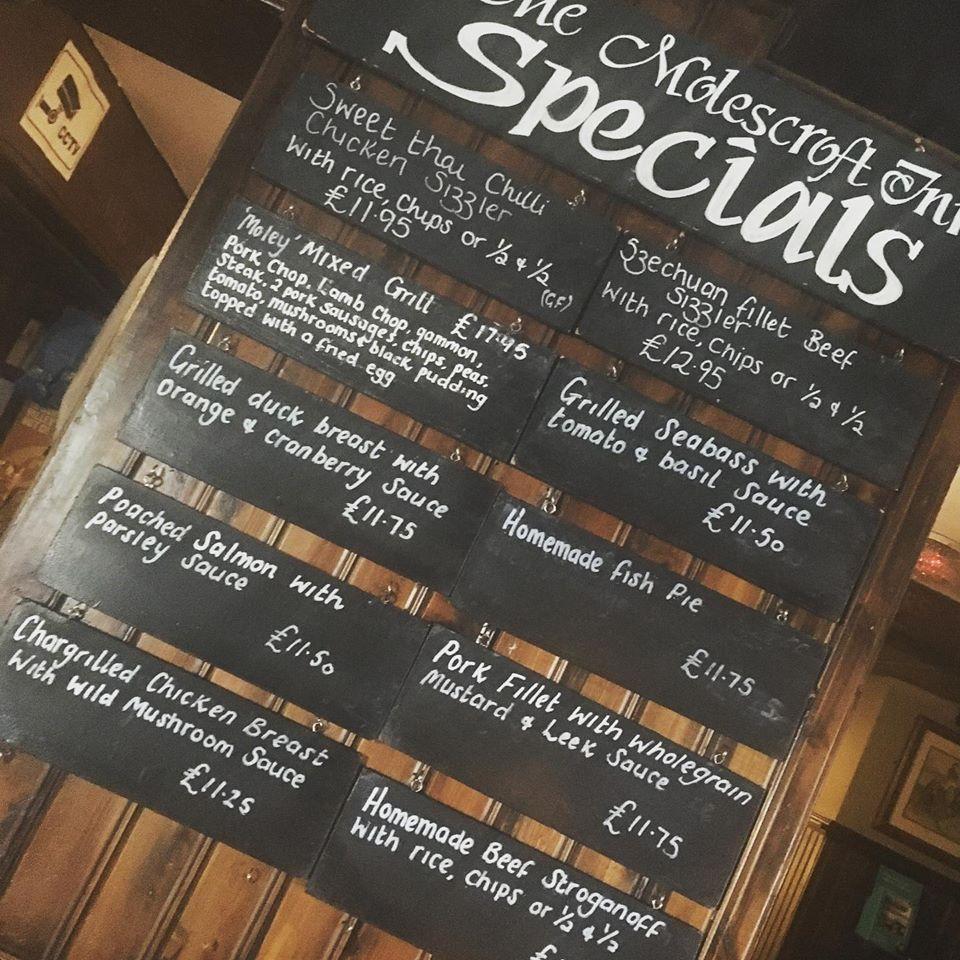 The Molescroft Inn
Specials
CCTV
Sweet thai Chilli
Chicken Sizzler
With rice, chips or ½ & ½
£11.95
(G.F)
'Moley' Mixed Grill £17.95
Pork Chop, Lamb Chop, gammon,
Steak, 2 pork Sausages, chips, peas,
tomato, mushrooms & black pudding
topped with a fried egg
Grilled duck breast with
Orange & cranberry Sauce
£11.75
Poached Salmon with
parsley Sauce
£11.50
Chargrilled Chicken Breast
With Wild Mushroom Sauce
£11.25
Szechuan fillet Beef
Sizzler
With rice, Chips or ½ & ½
£12.95
Grilled Seabass with
tomato & basil Sauce
£11.50
Homemade fish Pie
£11.75
Pork Fillet with wholegrain
Mustard & Leek Sauce
£11.75
Homemade Beef Stroganoff
With rice, chips or ½ & ½
£